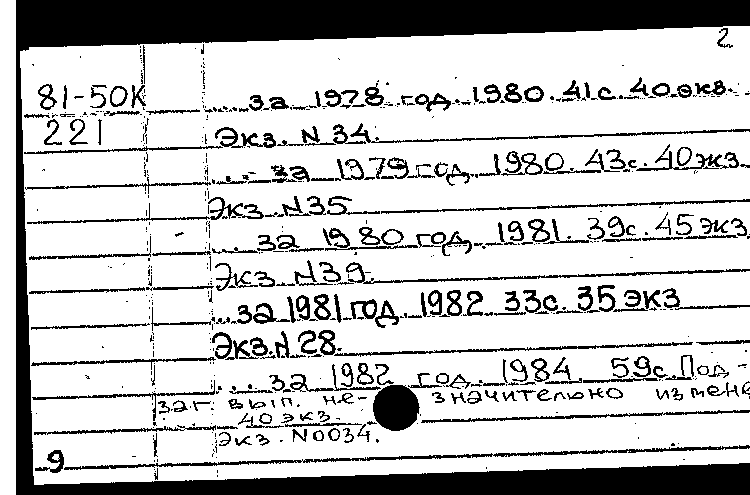 2
81-50К ... за 1978 год. 1980. 41с. 40 экз.
221 Экз. N 34.
... за 1979 год. 1980. 43с. 40 экз
Экз. N35
... за 1980 год. 1981. 39с. 45 экз
Экз. N39.
... за 1981 год. 1982. 33с. 35 экз
Экз. N 28.
... за 1982 год. 1984. 59с. Под-
заг. вып. не- значительно измене
40 экз.
Экз. N0034.
9